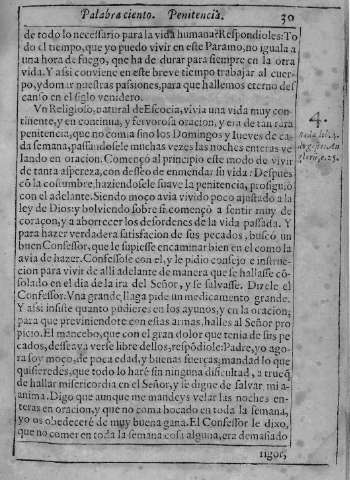 Palabra ciento. Penitencia. 30
de todo lo necessario para la vida humana? Respondioles: To
do el tiempo, que yo puedo vivir en este Paramo, no iguala a
una hora de fuego, que ha de durar para siempre en la otra
vida. Y assi conviene en este breve tiempo trabajar al cuer-
po, y domar nuestras passiones, para que hallemos eterno des
canto en el siglo venidero.
Vn Religioso, natural de Escocia, vivia una vida muy con-
tinente, y en continua, y fervorosa oracion, y era de tan rara
penitencia, que no comia sino los Domingos y Iueves de ca-
da semana, passandosele muchas vezes las noches enteras ve
lando en oracion. Començò al principio este modo de vivir
de tanta aspereza, con desseo de enmendar su vida: Despues
cõ la costumbre, haziendosele suave la penitencia, prosiguiò
con el adelante. Siendo moço avia vivido poco ajustado a la
ley de Dios: y bolviendo sobre si, començò a sentir muy de
coraçon, y a aborrecer los desordenes de la vida passada. Y
para hazer verdadera satisfacion de sus pecados, buscò un
buen Confessor, que le supiesse encaminar bien en el como la
avia de hazer. Confessose con el, y le pidio consejo e instruc-
cion para vivir de alli adelante de manera que se hallasse cõ-
solado en el dia de la ira del Señor, y se salvasse. Dizele el
Confessor. Vna grande llaga pide un medicamento grande.
Y assi insiste quanto pudieres en los ayunos, y en la oracion;
para que previniendote con estas armas, halles al Señor pro
picio. El mancebo, que con el gran dolor que tenia de sus pe
cados, desseava verse libre dellos, respõdiole: Padre, yo ago-
ra soy moço, de poca edad, y buenas fuerças; mandad lo que
quisieredes, que todo lo harè sin ninguna dificultad, a trueq̃
de hallar misericordia en el Señor, y se digne de salvar mi a-
anima. Digo que aunque me mandeys velar las noches en-
teras en oracion, y que no coma bocado en toda la semana,
yo os obedecerè de muy buena gana. El Confessor le dixo,
que no comer en toda la semana cosa alguna, era demasiado
rigor,
4.